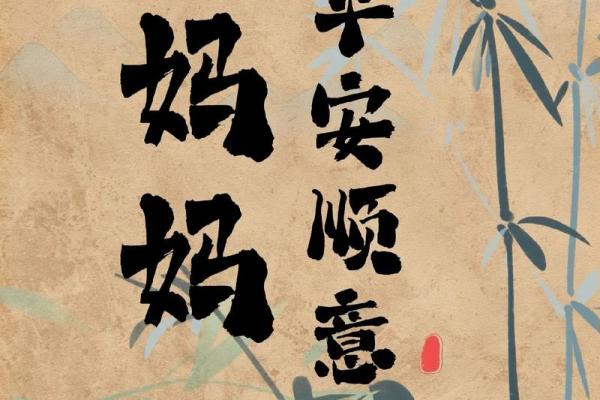 平安顺意
妈妈